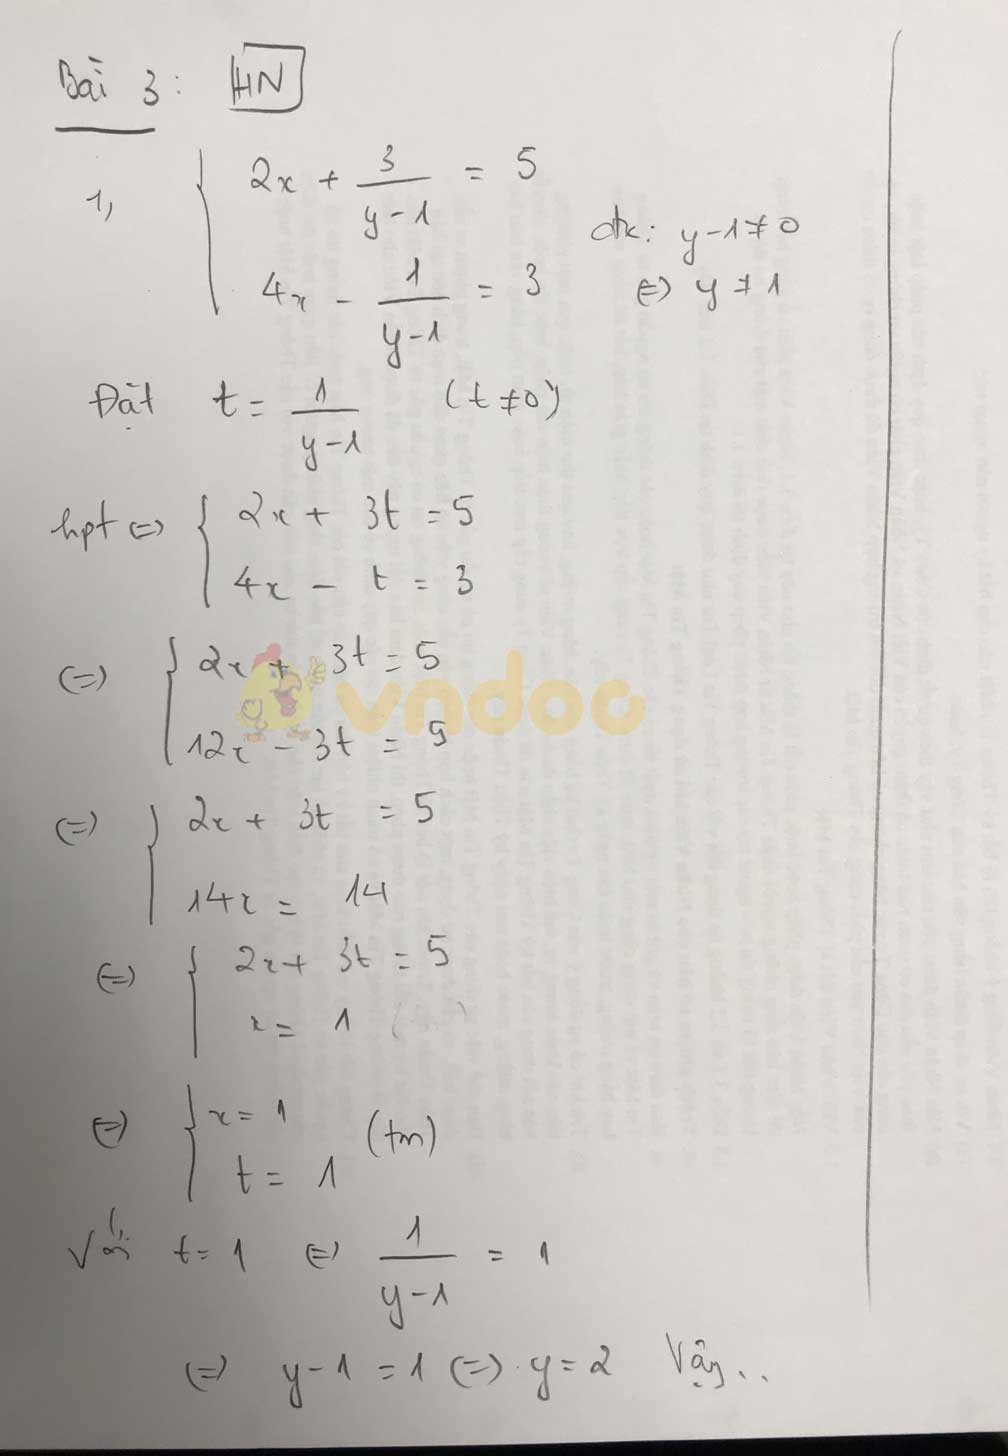 Bài 3: HN
1, { 2x + 3/(y-1) = 5
4x - 1/(y-1) = 3
đk: y-1≠0
⇔ y≠1
Đặt t = 1/(y-1) (t≠0)
hpt ⇔ { 2x + 3t = 5
4x - t = 3
⇔ { 2x + 3t = 5
vndoc
12x - 3t = 9
⇔ { 2x + 3t = 5
14x = 14
⇔ { 2x + 3t = 5
x = 1
⇔ { x = 1
t = 1 (tm)
Với t = 1 ⇔ 1/(y-1) = 1
⇔ y-1 = 1 ⇔ y = 2 Vậy..